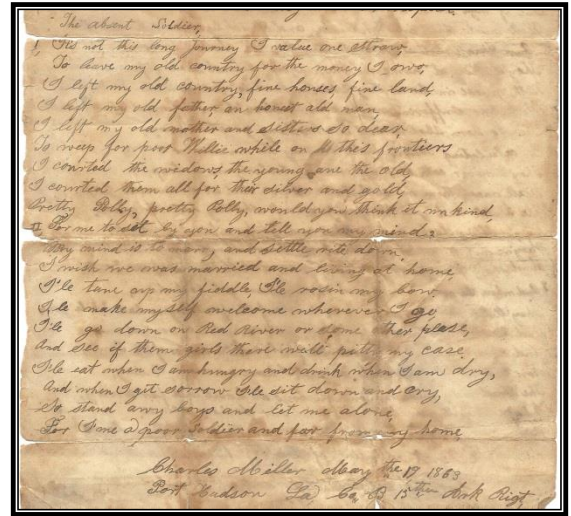 The absent Soldier,
I, Tis not this long Journey I value one straw,
To leave my old country for the money I owe,
I left my old country, fine houses, fine land,
I left my old father, an honest old man
I left my old mother and sisters so dear
To weep for poor Willie while on this frontiers
I courted the widows, the young, ane the old,
I courted them all for their silver and gold,
Pretty Polly, pretty Polly, would you think it unkind,
II For me to set by you and tell you my mind,
My mind is to marry, and settle rite down,
I wish we was married and living at home,
I'le tune up my fiddle, I'le rosin my bow,
Ile make myself welcome wherever I go
I'le go down on Red River or some ther plase,
And see if them girls there will pitty my case,
Ile eat when I am hungry and drink when I am dry,
And when I get sorrow Ile sit down and cry,
So stand awy boys and let me alone
For I me a poor Soldier and far from my home
Charles Miller May the 19 1863
Port Hudson La, Co, B 15th Ark Rigt,